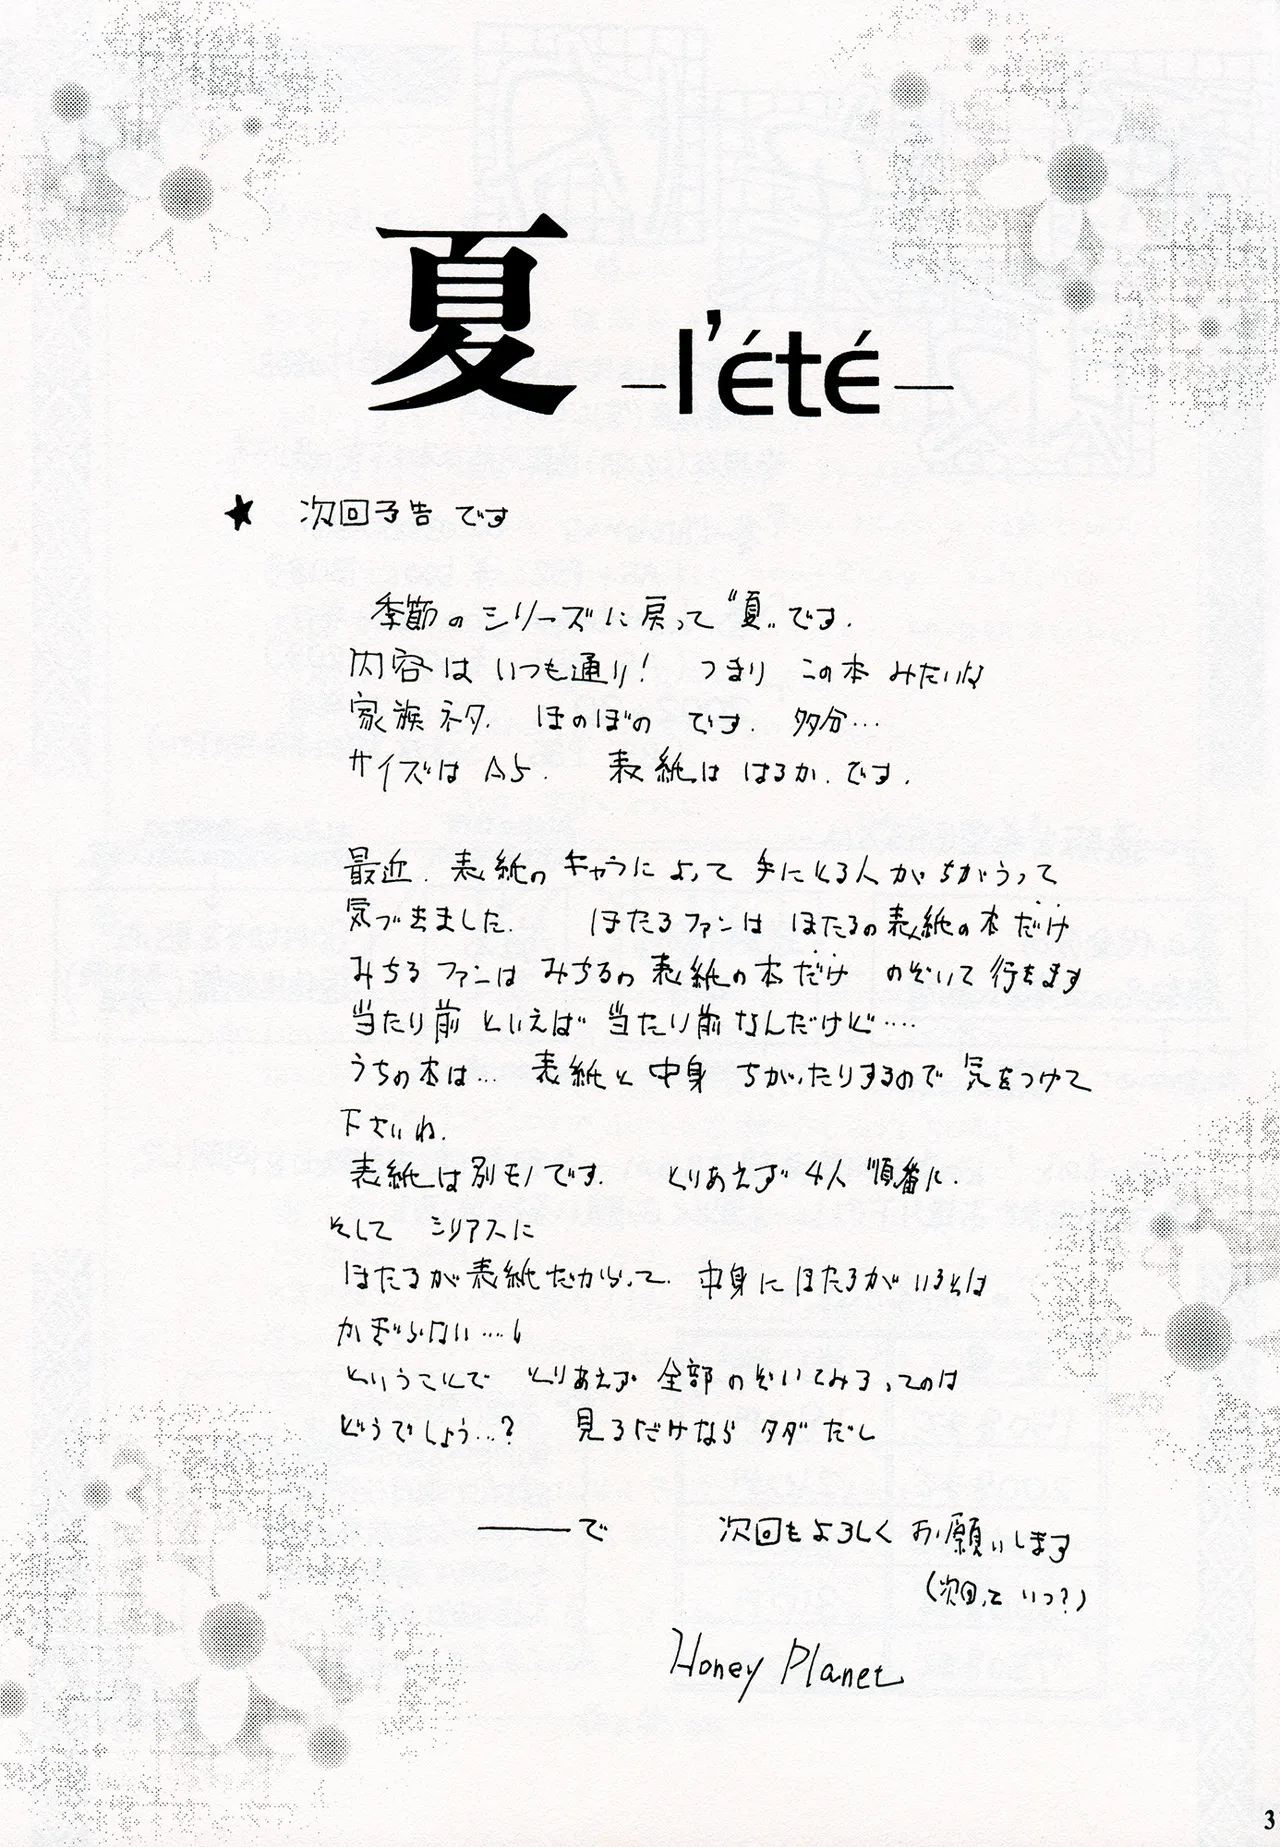 夏 -l'été-
★ 次回予告です
季節のシリーズに戻って“夏”です.
内容は いつも通り! つまり この本 みたいな
家族ネタ. ほのぼの です. 多分…
サイズは A5. 表紙は はるか.です.
最近. 表紙の キャラによって 手にとる人が ちがうって
気づきました. ほたるファンは ほたるの表紙の本だけ
みちるファンは みちるの表紙の本だけ のぞいて行きます
当たり前といえば 当たり前なんだけど….
うちの本は… 表紙と 中身 ちがったりするので 気をつけて
下さいね.
表紙は別モノです. とりあえず 4人 順番に.
そして シリアスに
ほたるが表紙だからって. 中身に ほたるが いるとは
かぎらない…!
ということで とりあえず 全部のぞいてみるってのは
どうでしょう…? 見るだけなら タダだし
――で 次回もよろしく お願いします
(次回って いつ?)
Honey Planet
3